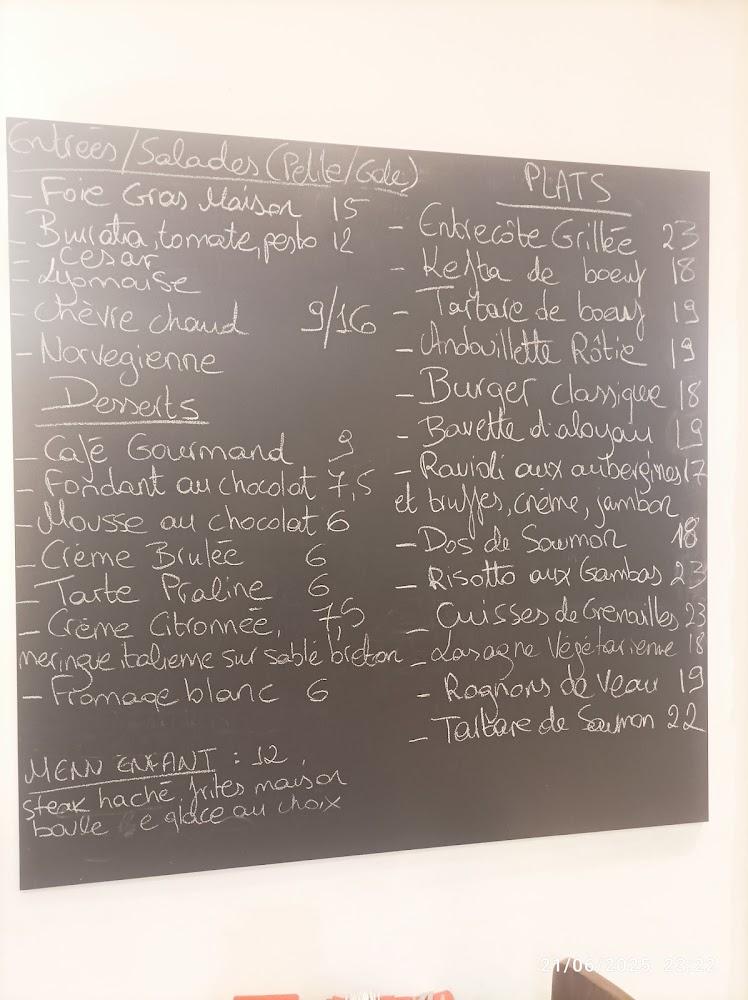 Entrées/Salades (Petite/Gde)
- Foie Gras Maison 15
- Burrata, tomate, pesto 12
- César
- Lyonnaise
- Chèvre chaud 9/16
- Norvegienne
Desserts
- Café Gourmand 9
- Fondant au chocolat 7,5
- Mousse au chocolat 6
- Crème Brulée 6
- Tarte Praline 6
- Crème Citronnée, 7,5
meringue italienne sur sablé breton
- Fromage blanc 6
MENU ENFANT : 12
steak haché, frites maison
boule de glace au choix
PLATS
- Entrecôte Grillée 23
- Kefta de boeuf 18
- Tartare de boeuf 19
- Andouillette Rôtie 19
- Burger classique 18
- Bavette d'aloyau 19
- Ravioli aux aubergines 17
et truffes, crème, jambon
- Dos de Saumon 18
- Risotto aux Gambas 23
- Cuisses de Grenouilles 23
- Lasagne Végétarienne 18
- Rognons de Veau 19
- Tartare de Saumon 22
21/06/2025 23:22